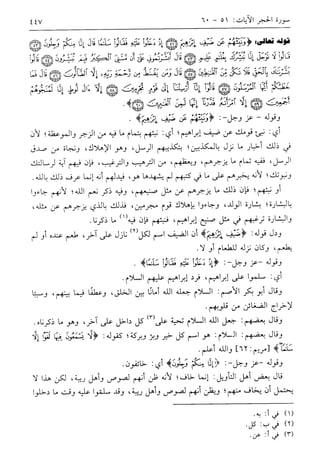 سورة الحجر الآيات: ٥١ - ٦٠
٤٤٧
قوله تعالى: ﴿وَنَبِّئْهُمْ عَن ضَيْفِ إِبْرَاهِيمَ ۝ إِذْ دَخَلُوا عَلَيْهِ فَقَالُوا سَلَامًا قَالَ إِنَّا مِنكُمْ وَجِلُونَ ۝
قَالُوا لَا تَوْجَلْ إِنَّا نُبَشِّرُكَ بِغُلَامٍ عَلِيمٍ ۝ قَالَ أَبَشَّرْتُمُونِي عَلَى أَن مَّسَّنِيَ الْكِبَرُ فَبِمَ تُبَشِّرُونَ ۝ قَالُوا
بَشَّرْنَاكَ بِالْحَقِّ فَلَا تَكُن مِّنَ الْقَانِطِينَ ۝ قَالَ وَمَن يَقْنَطُ مِن رَّحْمَةِ رَبِّهِ إِلَّا الضَّالُّونَ ۝ قَالَ
فَمَا خَطْبُكُمْ أَيُّهَا الْمُرْسَلُونَ ۝ قَالُوا إِنَّا أُرْسِلْنَا إِلَى قَوْمٍ مُّجْرِمِينَ ۝ إِلَّا آلَ لُوطٍ إِنَّا لَمُنَجُّوهُمْ
أَجْمَعِينَ ۝ إِلَّا امْرَأَتَهُ قَدَّرْنَا إِنَّهَا لَمِنَ الْغَابِرِينَ ۝﴾.
وقوله - عز وجل-: ﴿وَنَبِّئْهُمْ عَن ضَيْفِ إِبْرَاهِيمَ﴾.
أي: نبئ قومك عن ضيف إبراهيم؛ أي: نبئهم بتمام ما فيه من الزجر والموعظة؛ لأن
في ذلك أخبار ما نزل بالمكذبين؛ بتكذيبهم الرسل، وهو الإهلاك، ونجاة من صدق
الرسل، ففيه تمام ما يزجرهم، ويعظهم، من الترهيب والترغيب، فإن فيهم آية لرسالتك
ونبوتك؛ لأنه يخبرهم على ما في كتبهم لم يشهدها هو، فيدلهم أنه إنما عرف ذلك بالله.
أو نبئهم؛ فإن ذلك ما يزجرهم عن مثل صنيعهم، وفيه ذكر نعم الله؛ لأنهم جاءوا
بالبشارة؛ بشارة الولد، وجاءوا بإهلاك قوم مجرمين، فذلك بالذي يزجرهم عن مثله،
والبشارة ترغبهم في مثل صنيع إبراهيم، فنبئهم فإن فيه(١) ما ذكرنا.
ودل قوله: ﴿وَنَبِّئْهُمْ عَن ضَيْفِ إِبْرَاهِيمَ﴾ أن الضيف اسم لكل(٢) نازل على آخر، طعم عنده أو لم
يطعم، وكان نزله للطعام أو لا.
وقوله -عز وجل-: ﴿إِذْ دَخَلُوا عَلَيْهِ فَقَالُوا سَلَامًا﴾.
أي: سلموا على إبراهيم، فرد إبراهيم عليهم السلام.
وقال أبو بكر الأصم: السلام جعله الله أمانًا بين الخلق، وعطفًا فيما بينهم، وسببًا
لإخراج الضغائن من قلوبهم.
وقال بعضهم: جعل الله السلام تحية على(٣) كل داخل على آخر، وهو ما ذكرناه.
وقال بعضهم: السلام: هو اسم كل خير وبر وبركة؛ كقوله: ﴿لَّا يَسْمَعُونَ فِيهَا لَغْوًا إِلَّا
سَلَامًا﴾ [مريم: ٦٢] والله أعلم.
وقوله -عز وجل-: ﴿إِنَّا مِنكُمْ وَجِلُونَ﴾ أي: خائفون.
قال بعض أهل التأويل: إنما خاف؛ لأنه ظن أنهم لصوص وأهل ريبة، لكن هذا لا
يحتمل أن يخاف منهم؛ ويظن أنهم لصوص وأهل ريبة، وقد سلموا عليه وقت ما دخلوا
(١) في أ: به.
(٢) في ب: كل.
(٣) في أ: عن.